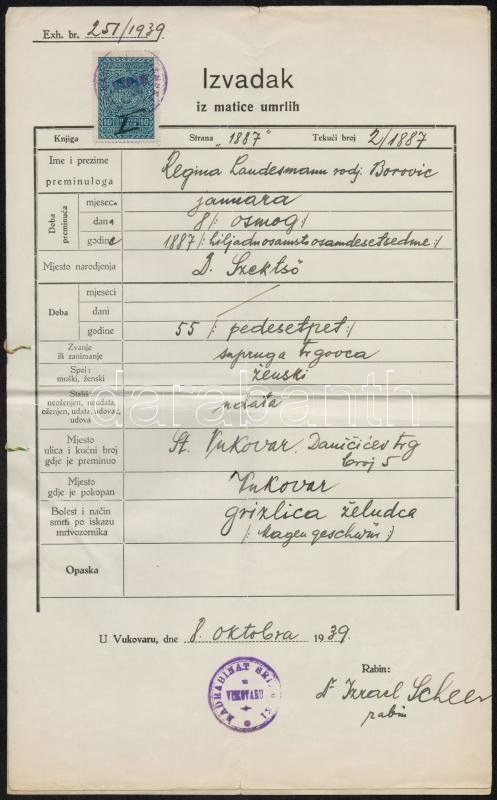 Exh. br. 251/1939
10 10
Izvadak
iz matice umrlih
Knjiga Strana "1887" Tekući broj 2/1887
Ime i prezime
preminuloga
Regina Landesmann rodj. Borovic
Doba
preminuća
mjeseca januara
dana 8/: osmog :/
godine 1887/: hiljadnosamstoosamdesetsedme :/
Mjesto narodjenja D. Szektsö
Doba
mjeseci
dani
godine 55 /: pedesetpet :/
Zvanje
ili zanimanje
supruga trgovca
Spol:
muški, ženski
ženski
Stališ
neoženjen, neudata,
oženjen, udata, udovac,
udova
udata
Mjesto
ulica i kućni broj
gdje je preminuo
St. Vukovar, Daničićev trg
broj 5
Mjesto
gdje je pokopan
Vukovar
Bolest i način
smrti po iskazu
mrtvozornika
grizlica želudca
/: Magengeschwür :/
Opaska
U Vukovaru, dne 8. oktobra 1939.
Rabin:
Dr Izrael Scheer
rabin
NADRABINAT
VUKOVARU
darabanth